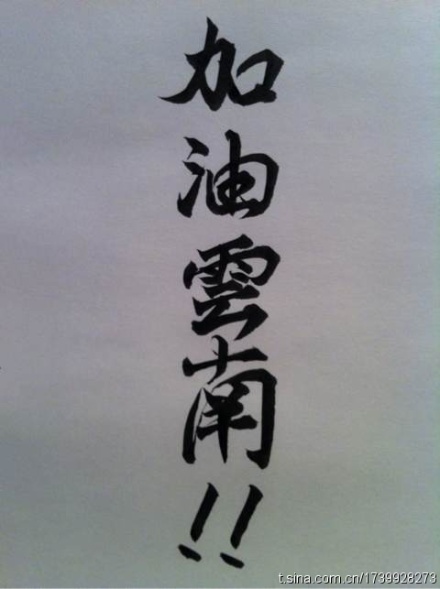 加油雲南!!
t.sina.com.cn/1739928273